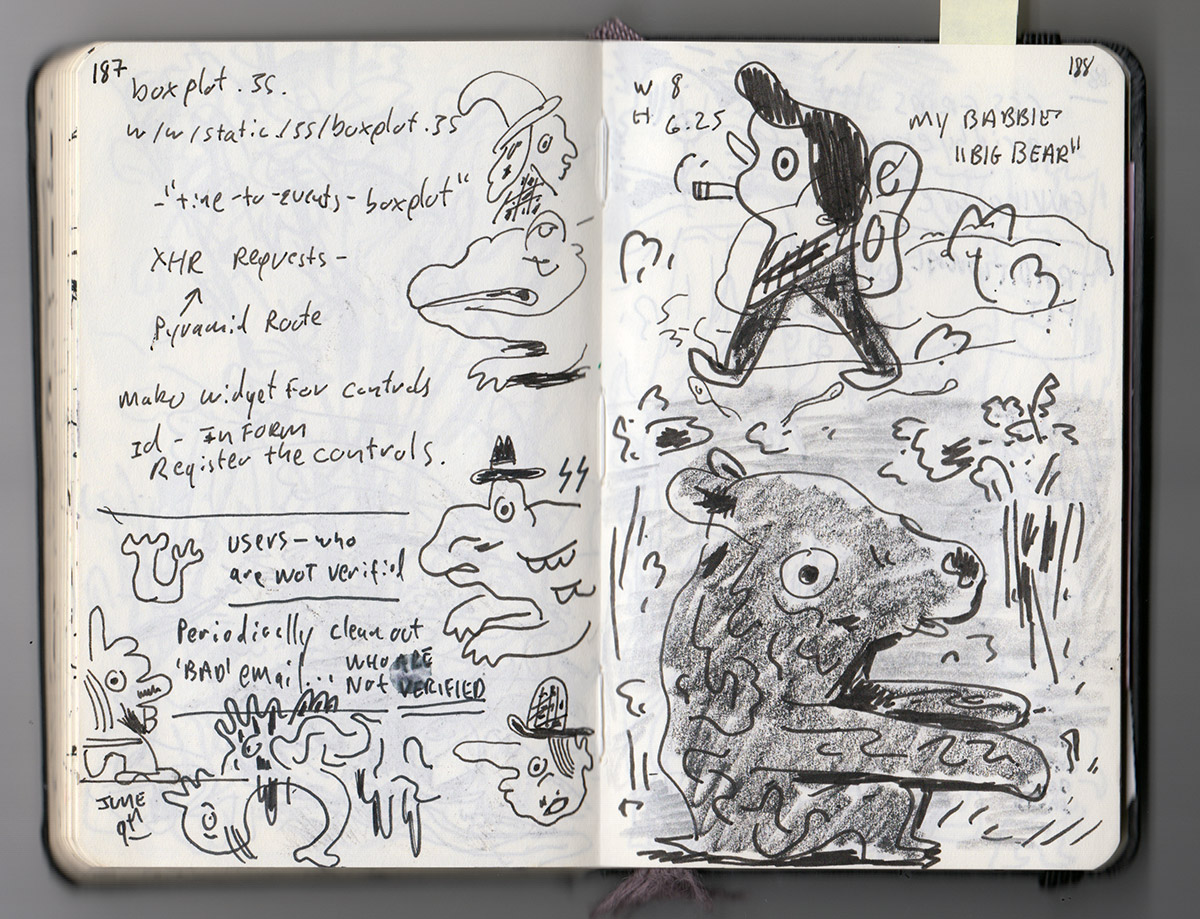 187
boxplot.JS.
w/w/static/JS/boxplot.JS
- "time-to-events-boxplot"
XHR Requests -
Pyramid Route
Make widget for controls
Id - In Form
Register the controls.
users - who
are NOT verified
Periodically clean out
'BAD' email... WHO ARE
Not VERIFIED
JUNE
9th
188
W 8
H 6.25
MY BABBIE
"BIG BEAR"